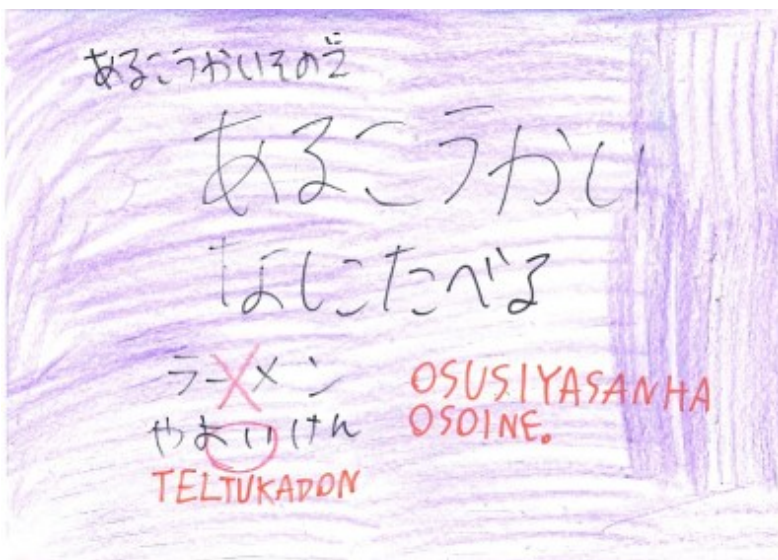 あるこうかいその2
に
あるこうかい
なにたべる
ラーメン
やよいけん
TELTUKADON
OSUSIYASANHA
OSOINE.